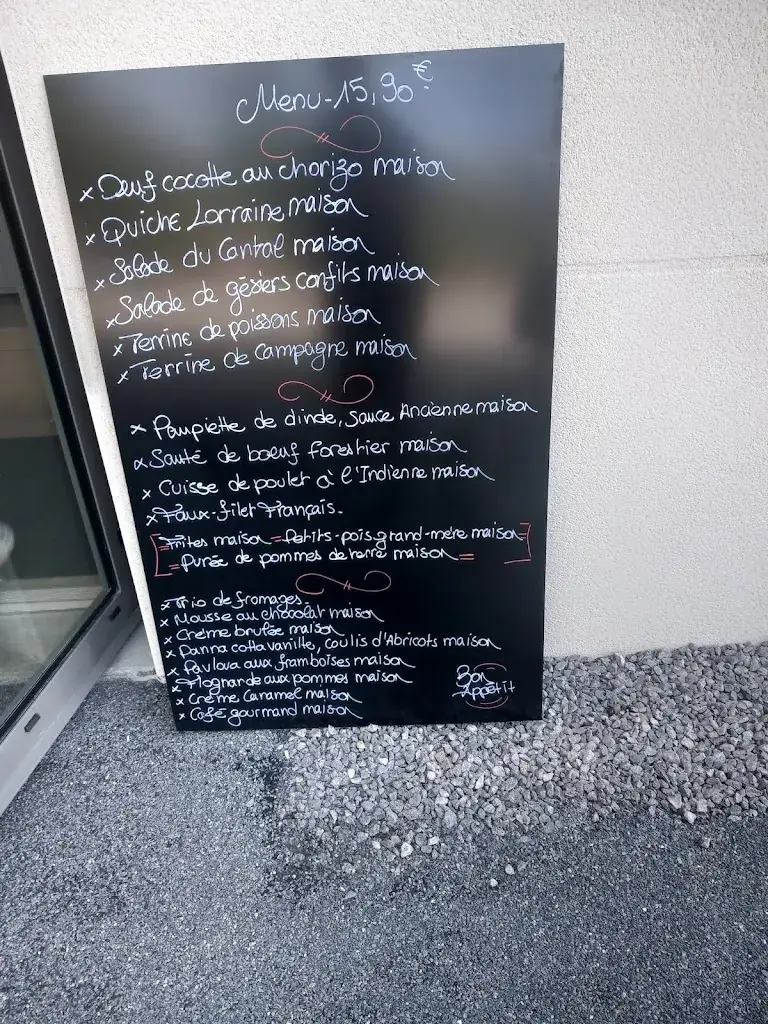 Menu - 15,90€
x Oeuf cocotte au chorizo maison
x Quiche Lorraine maison
x Salade du Cantal maison
x Salade de gésiers confits maison
x Terrine de poissons maison
x Terrine de Campagne maison
x Paupiette de dinde, sauce Ancienne maison
x Sauté de boeuf forestier maison
x Cuisse de poulet à l'Indienne maison
x Faux-filet Français.
Frites maison = Petits-pois grand-mère maison =
= Purée de pommes de terre maison =
x Trio de fromages.
x Mousse au chocolat maison
x Crème brulée maison
x Panna cotta vanille, coulis d'Abricots maison
x Pavlova aux framboises maison
x Flognarde aux pommes maison
x Crème Caramel maison
x Café gourmand maison
Bon
Appétit